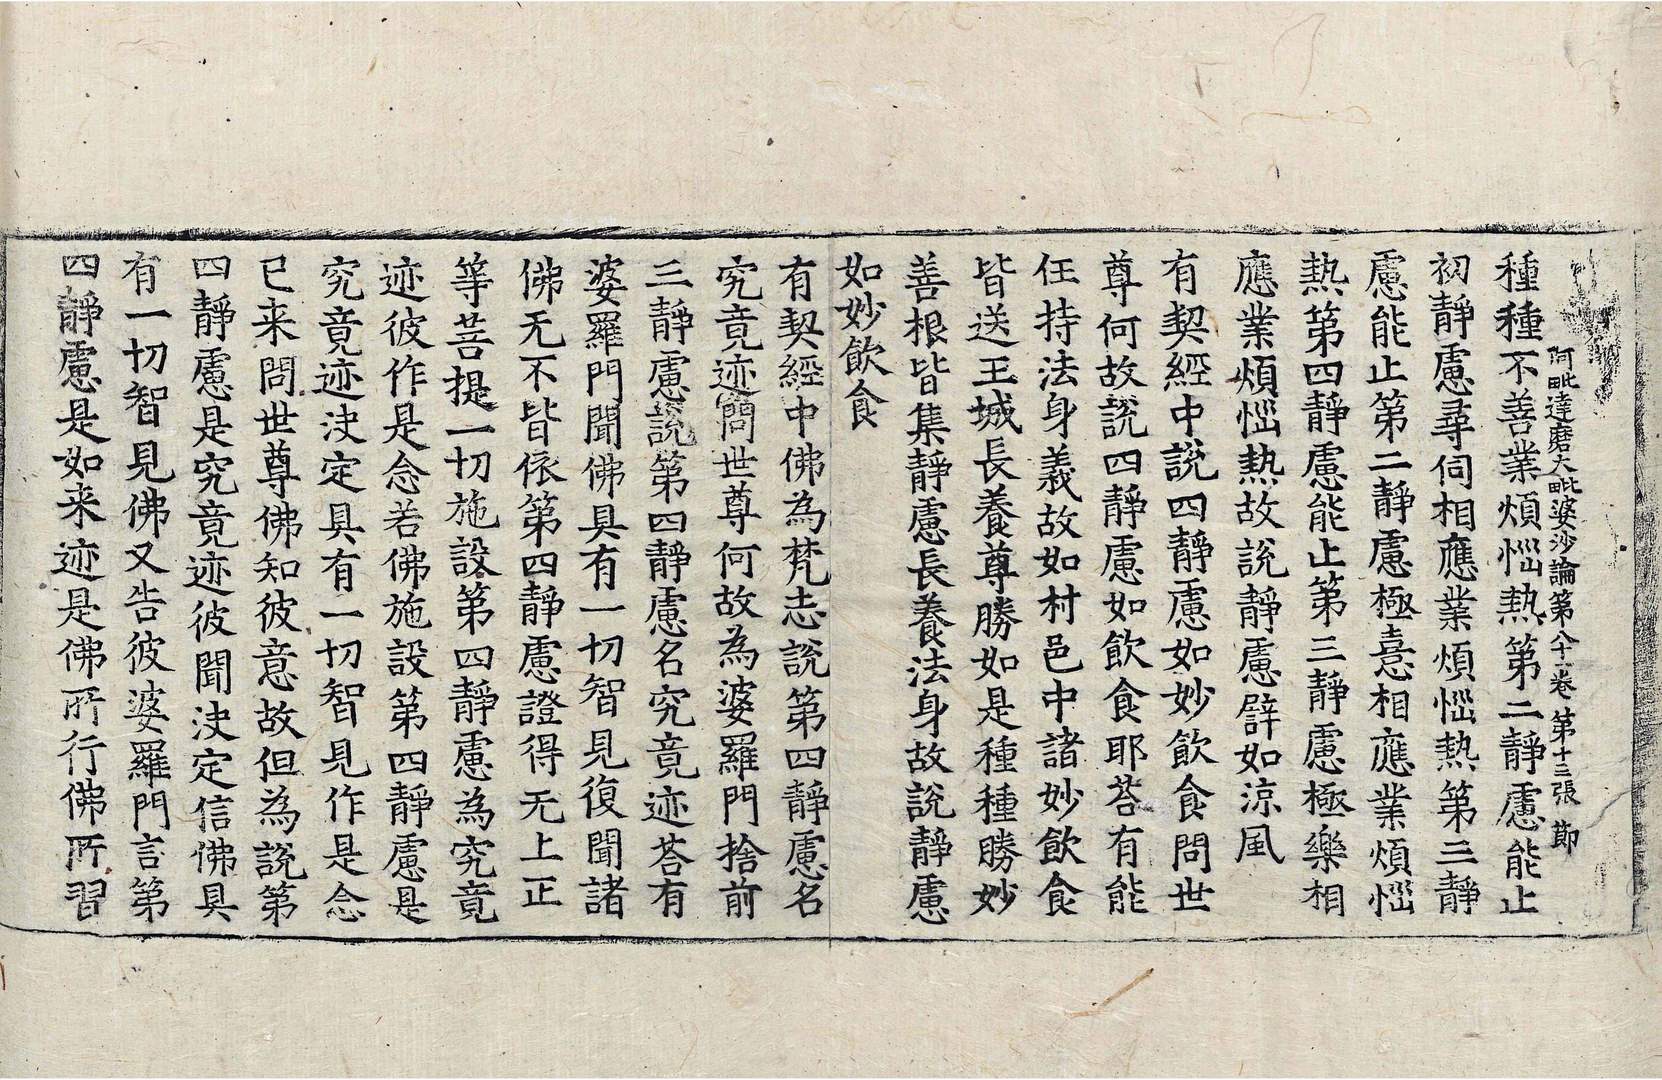 阿毗達磨大毗婆沙論第八十一卷 第十三張 節
種種不善業煩惱熱第二靜慮能止
初靜慮尋伺相應業煩惱熱第三靜
慮能止第二靜慮極憙相應業煩惱
熱第四靜慮能止第三靜慮極樂相
應業煩惱熱故說靜慮譬如涼風
有契經中說四靜慮如妙飲食問世
尊何故說四靜慮如飲食耶荅有能
任持法身義故如村邑中諸妙飲食
皆送王城長養尊勝如是種種勝妙
善根皆集靜慮長養法身故說靜慮
如妙飲食
有契經中佛為梵志說第四靜慮名
究竟迹問世尊何故為婆羅門捨前
三靜慮說第四靜慮名究竟迹荅有
婆羅門聞佛具有一切智見復聞諸
佛无不皆依第四靜慮證得无上正
等菩提一切施設第四靜慮為究竟
迹彼作是念若佛施設第四靜慮是
究竟迹決定具有一切智見作是念
已来問世尊佛知彼意故但為說第
四靜慮是究竟迹彼聞決定信佛具
有一切智見佛又告彼婆羅門言第
四靜慮是如来迹是佛所行佛所習